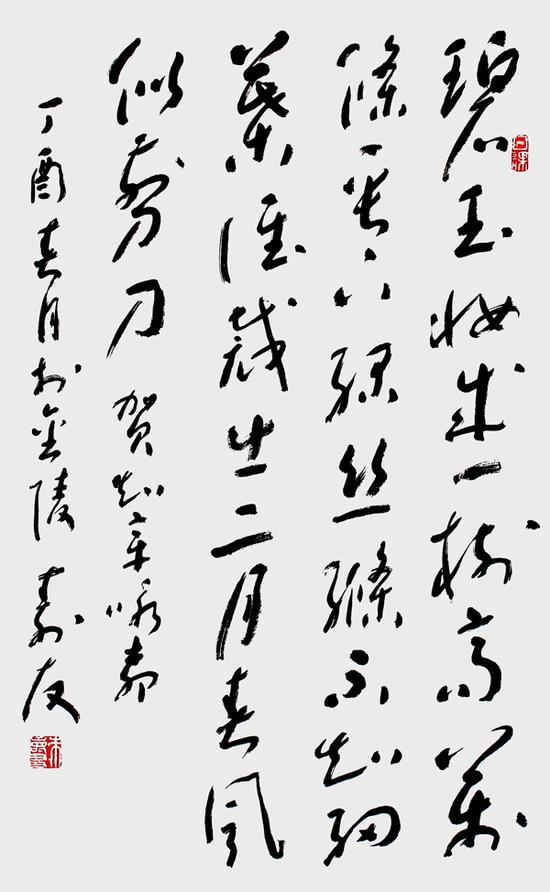 碧玉妝成一樹高萬
條垂下綠絲縧不知細
葉誰裁出二月春風
似剪刀 賀知章詠柳
丁酉春月於金陵 壽友